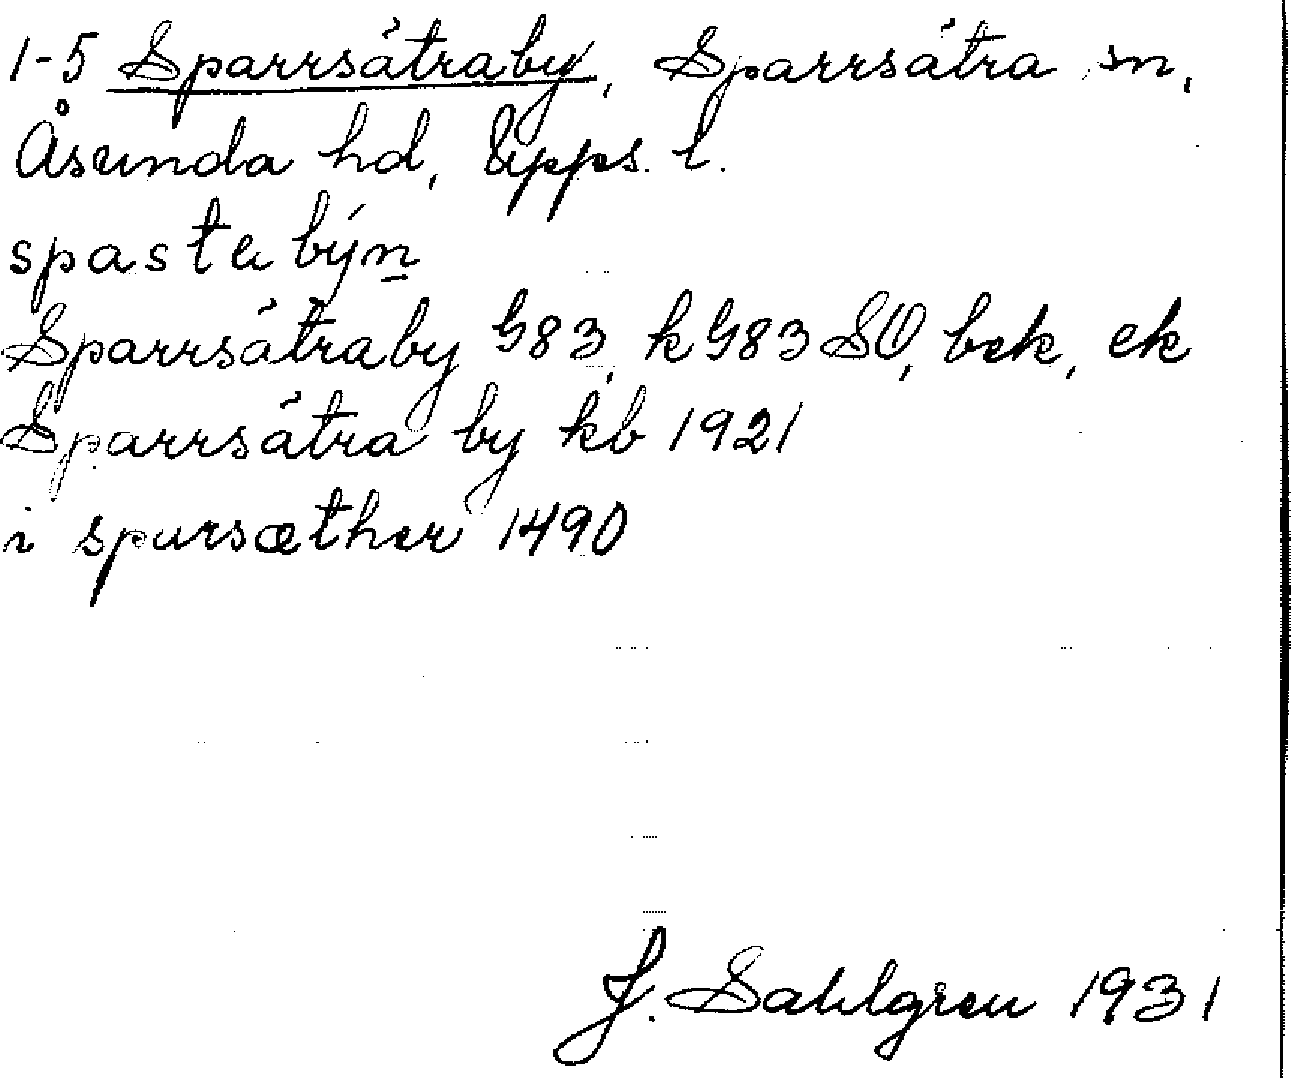 1-5 Sparrsätraby, Sparrsätra sn,
Åsunda hd, Upps. l.
spasta býn
Sparrsätraby G83, k G83 SO, bek, ek
Sparrsätra by kb 1921
i spursæther 1490
J. Sahlgren 1931